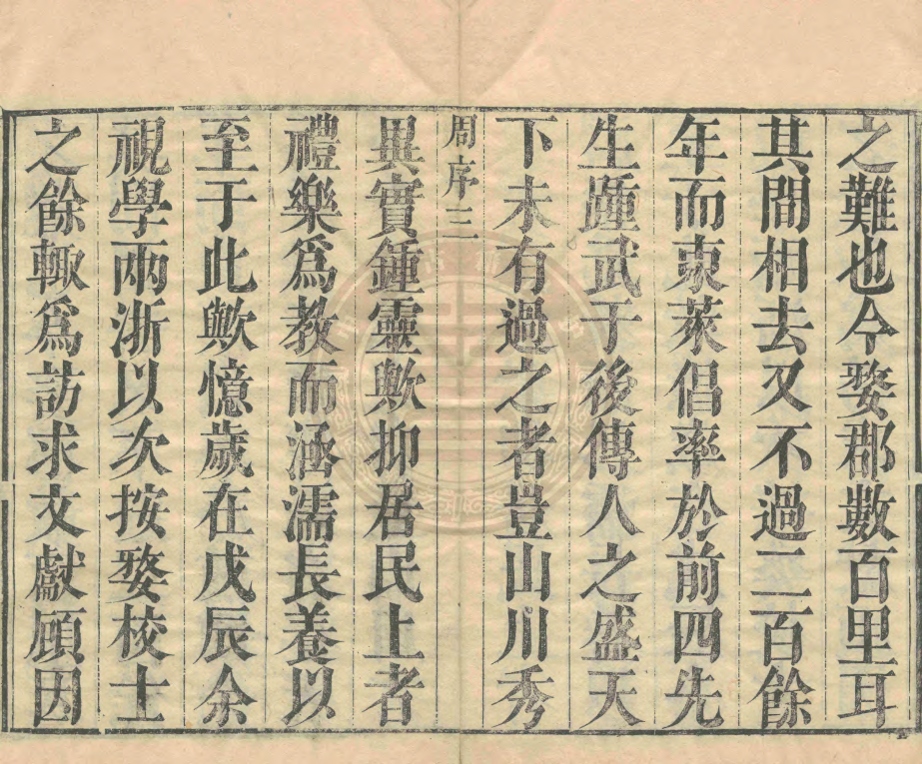 之難也今婺郡數百里耳
其間相去又不過二百餘
年而東萊倡率於前四先
生踵武于後傳人之盛天
下未有過之者豈山川秀
周序三
異實鍾靈歟抑居民上者
禮樂爲教而涵濡長養以
至于此歟憶歲在戊辰余
視學兩浙以次按婺校士
之餘輙爲訪求文獻顧因